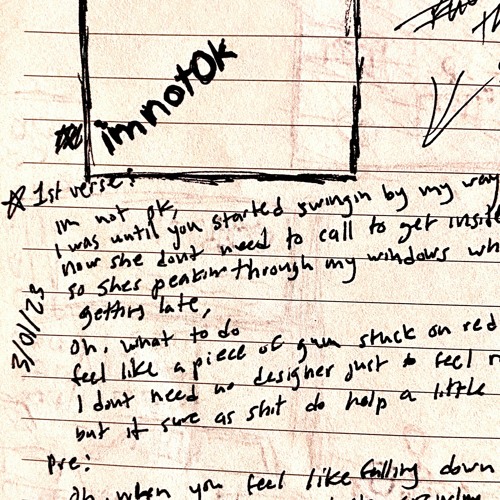 im not Ok
1st verse:
im not ok,
I was until you started swingin by my way
now she dont need to call to get insi
so shes peakin through my windows wh
getting late,
oh, what to do
feel like a piece of gum stuck on red
I dont need no designer just to feel
but it sure as shit do help a little
3/01/23
pre:
Oh, when you feel like falling down